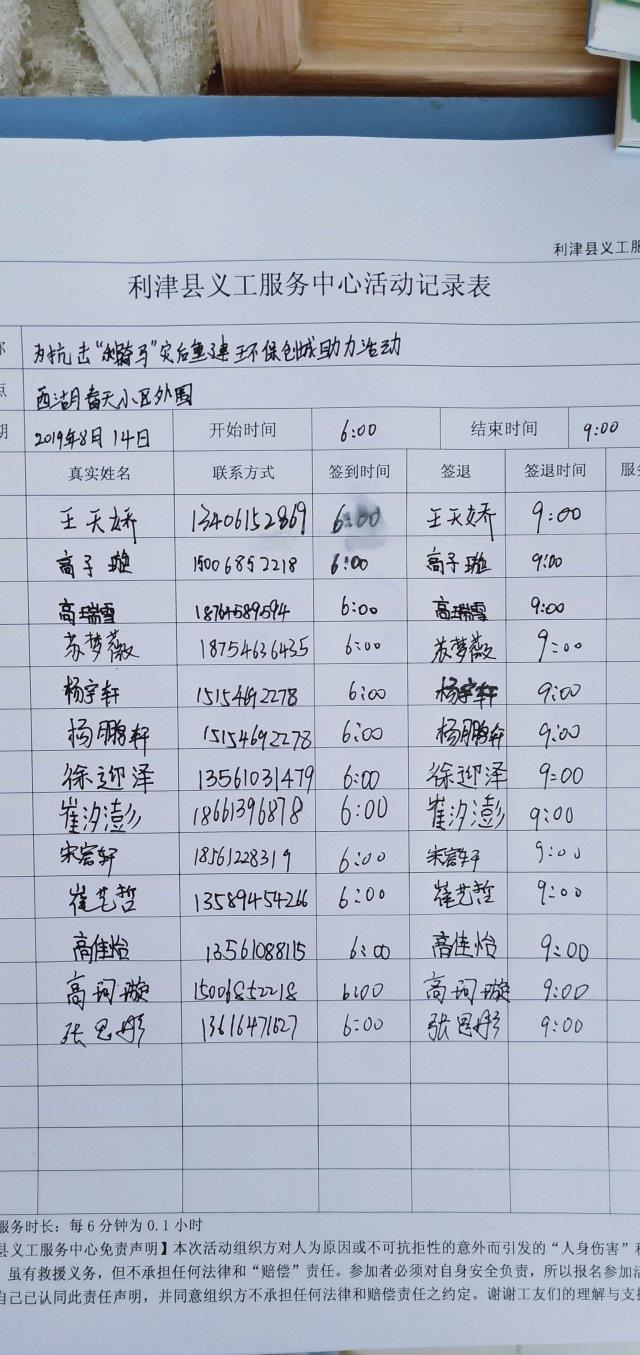 利津县义工服
利津县义工服务中心活动记录表
称 为抗击“利骑马”灾后重建环保创城助力活动
点 西湖春天小区外围
期 2019年8月14日 开始时间 6:00 结束时间 9:00
真实姓名 联系方式 签到时间 签退 签退时间 服务
王天娇 13406152869 6:00 王天娇 9:00
高子璇 15006852218 6:00 高子璇 9:00
高瑞雪 18764589594 6:00 高瑞雪 9:00
苏梦薇 18754636435 6:00 苏梦薇 9:00
杨宇轩 15154692278 6:00 杨宇轩 9:00
杨鹏轩 15154692278 6:00 杨鹏轩 9:00
徐迎泽 13561031479 6:00 徐迎泽 9:00
崔汐澎 18661396878 6:00 崔汐澎 9:00
宋宥轩 18561228319 6:00 宋宥轩 9:00
崔艺哲 13589454266 6:00 崔艺哲 9:00
高佳怡 13561088115 6:00 高佳怡 9:00
高珂璇 15006852218 6:00 高珂璇 9:00
张恩彤 13616471627 6:00 张恩彤 9:00
服务时长：每6分钟为0.1小时
县义工服务中心免责声明】本次活动组织方对人为原因或不可抗拒性的意外而引发的“人身伤害”和
虽有救援义务，但不承担任何法律和“赔偿”责任。参加者必须对自身安全负责，所以报名参加活
自己已认同此责任声明，并同意组织方不承担任何法律和赔偿责任之约定。谢谢工友们的理解与支持